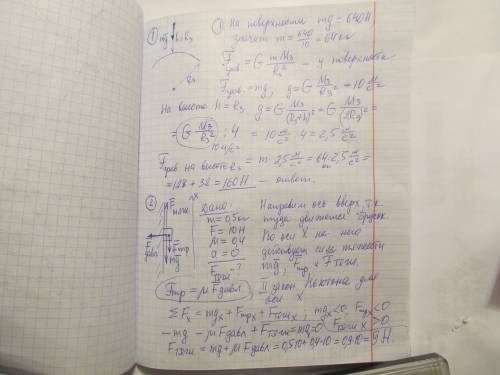 ① mg h=Rз
Rз
① На поверхности mg = 640 Н
значит m = 640/10 = 64 кг
Fграв = G mMз/Rз² – у поверхности
Fграв = mg; g = G Mз/Rз² = 10 м/с²
На высоте h = Rз g = G Mз/(Rз+h)² = G Mз/(2Rз)² =
= G Mз/Rз² : 4 = 10 м/с² : 4 = 2,5 м/с²
10 м/с²
Fграв на высоте Rз = m · 2,5 м/с² = 64 кг · 2,5 м/с² =
= 128 + 32 = 160 Н – ответ.
②
Fтяги
Fдавл
Fтр
mg
x
Дано:
m = 0,5 кг
F = 10 Н
μ = 0,4
a = 0
Fтяги - ?
Направим ось вверх, т.к.
туда движется брусок.
По оси X на него
действуют сила тяжести
mg, Fтр и Fтяги.
Fтр = μ Fдавл
II закон Ньютона для
оси X
ΣFx = mgx + Fтрx + Fтягиx ; mgx<0, Fтрx<0
Fтягиx > 0
– mg – μFдавл + Fтяги = ma = 0
Fтяги = mg + μFдавл = 0,5·10 + 0,4·10 = 0,9·10 = 9 Н.